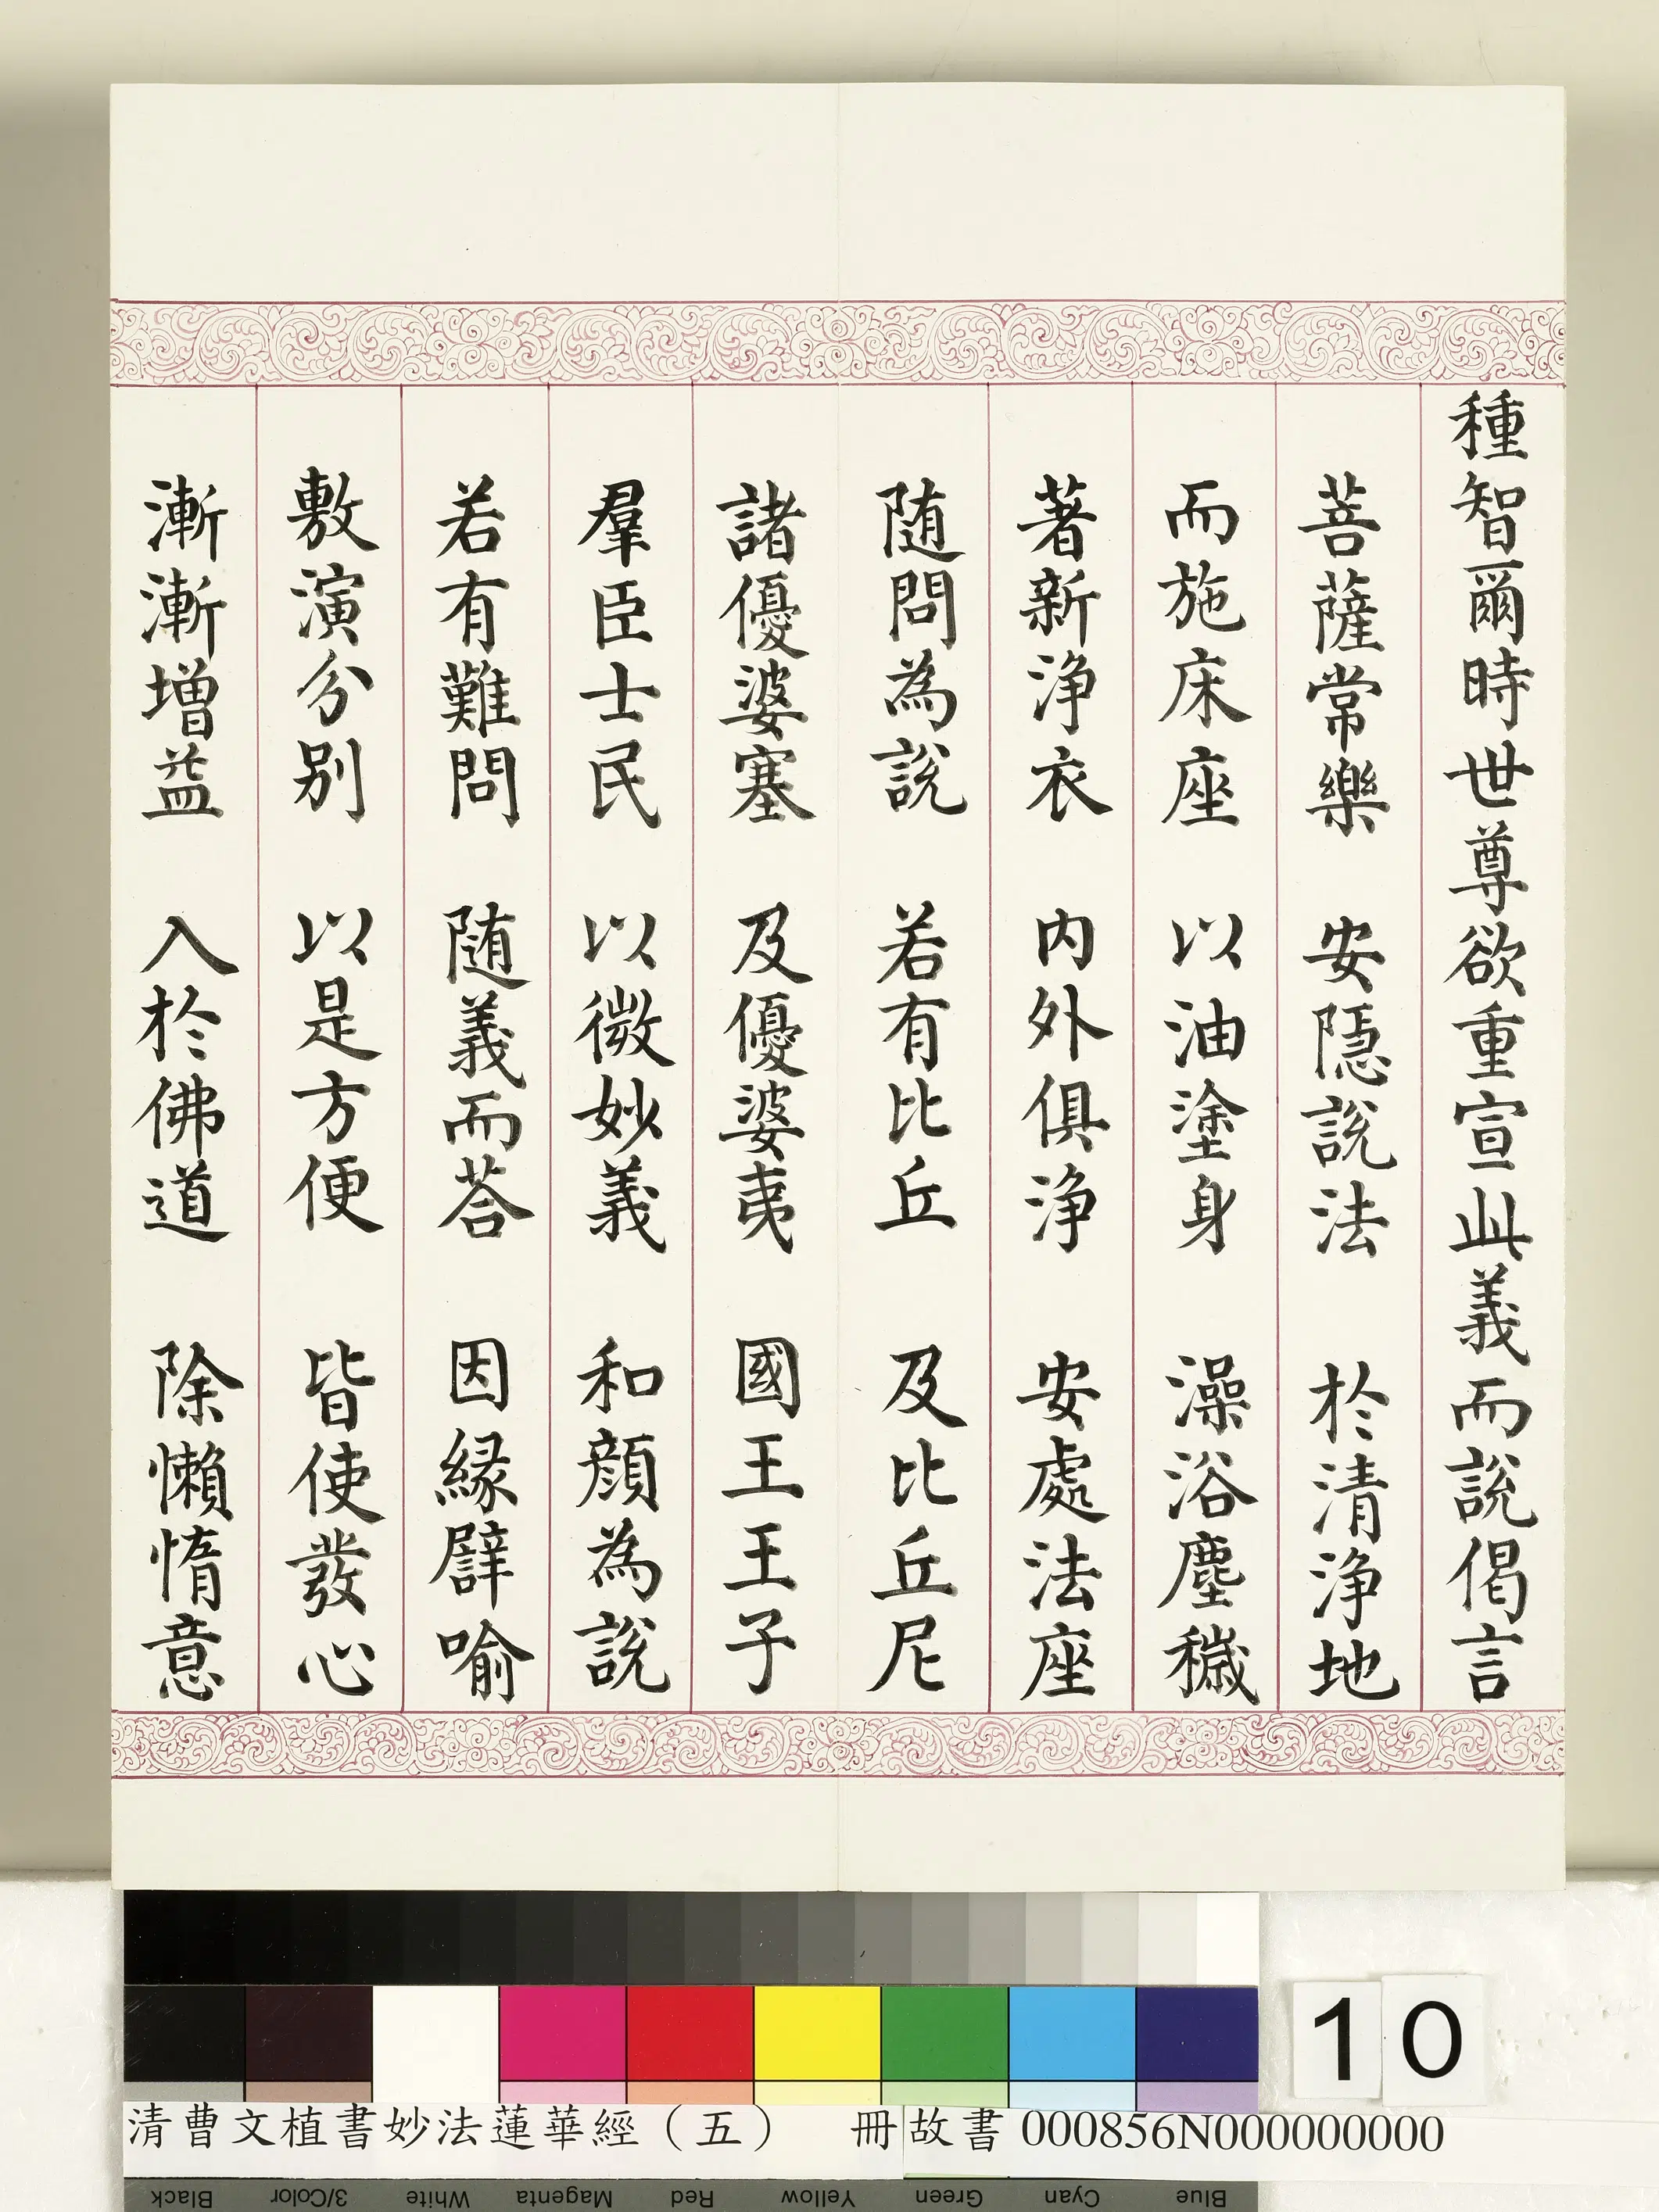 種智爾時世尊欲重宣此義而說偈言
菩薩常樂　安隱說法　於清淨地
而施床座　以油塗身　澡浴塵穢
著新淨衣　內外俱淨　安處法座
随問為說　若有比丘　及比丘尼
諸優婆塞　及優婆夷　國王王子
羣臣士民　以微妙義　和顏為說
若有難問　随義而荅　因緣譬喻
敷演分別　以是方便　皆使發心
漸漸增益　入於佛道　除懶惰意
10
清曹文植書妙法蓮華經（五）　冊 故書 000856N000000000
Black 3/Color White Magenta Red Yellow Green Cyan Blue